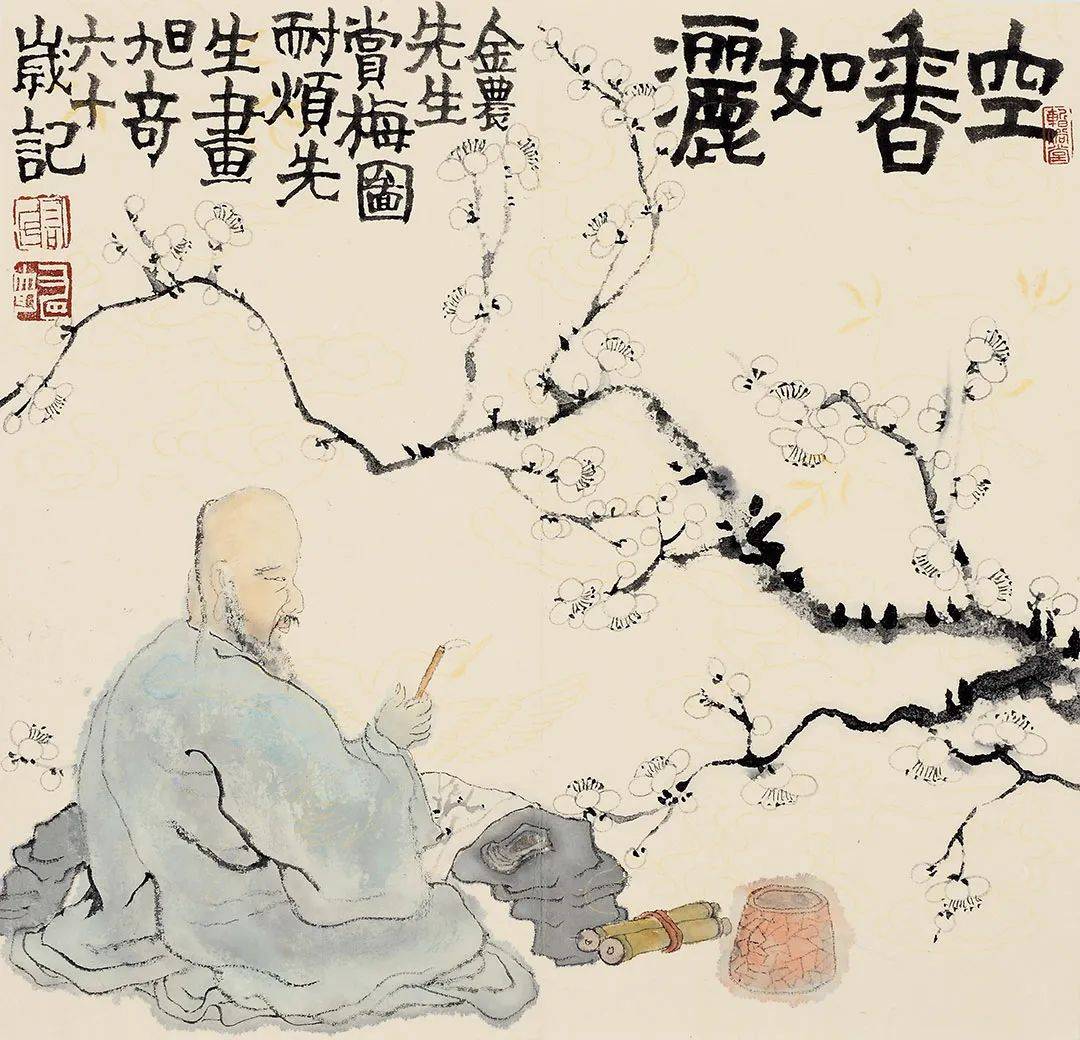 空香如灑
金農
先生
賞梅圖
耐煩先
生畫
旭竒
六十
歲記